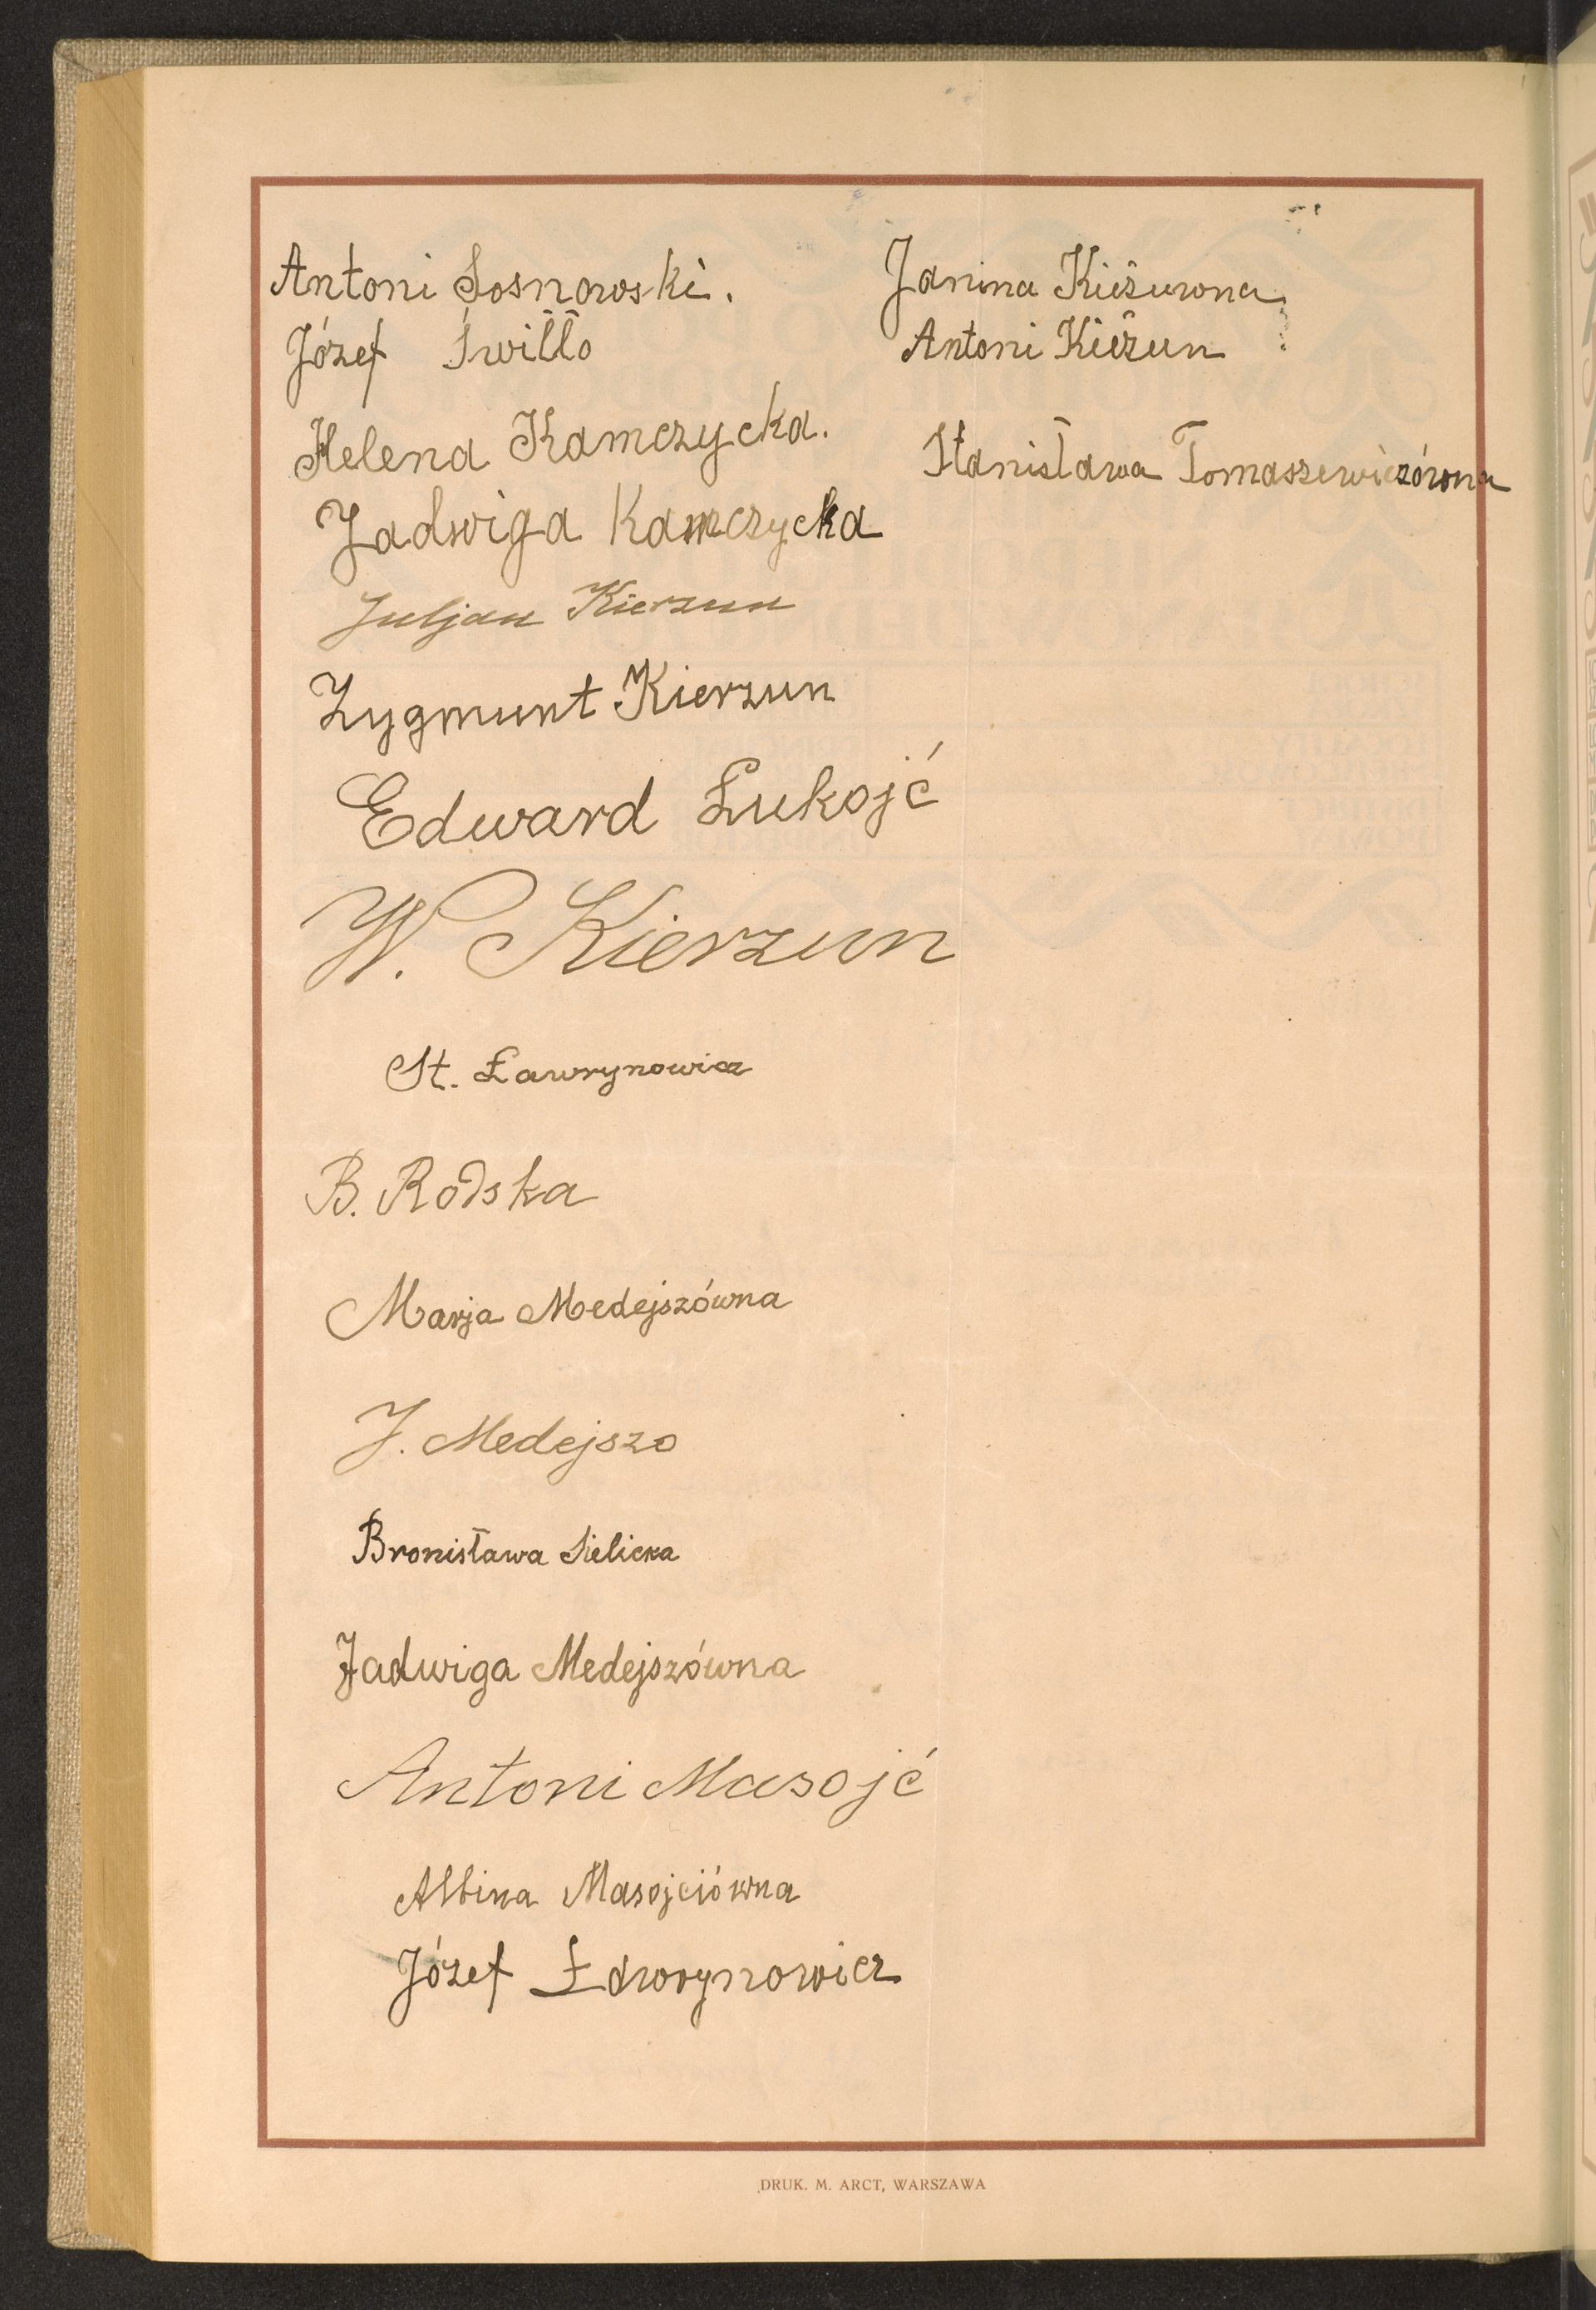 Antoni Sosnowski.
Józef Świłło
Helena Kamczycka.
Jadwiga Kamczycka
Juljan Kierzun
Zygmunt Kierzun
Edward Łukojć
W. Kierzun
St. Ławrynowicz
B. Rodska
Marja Medejszówna
J. Medejszo
Bronisława Sielicka
Jadwiga Medejszówna
Antoni Masojć
Albina Masojciówna
Józef Ławrynowicz
Janina Kieżunowna
Antoni Kieżun
Stanisława Tomaszewiczówna
DRUK. M. ARCT, WARSZAWA